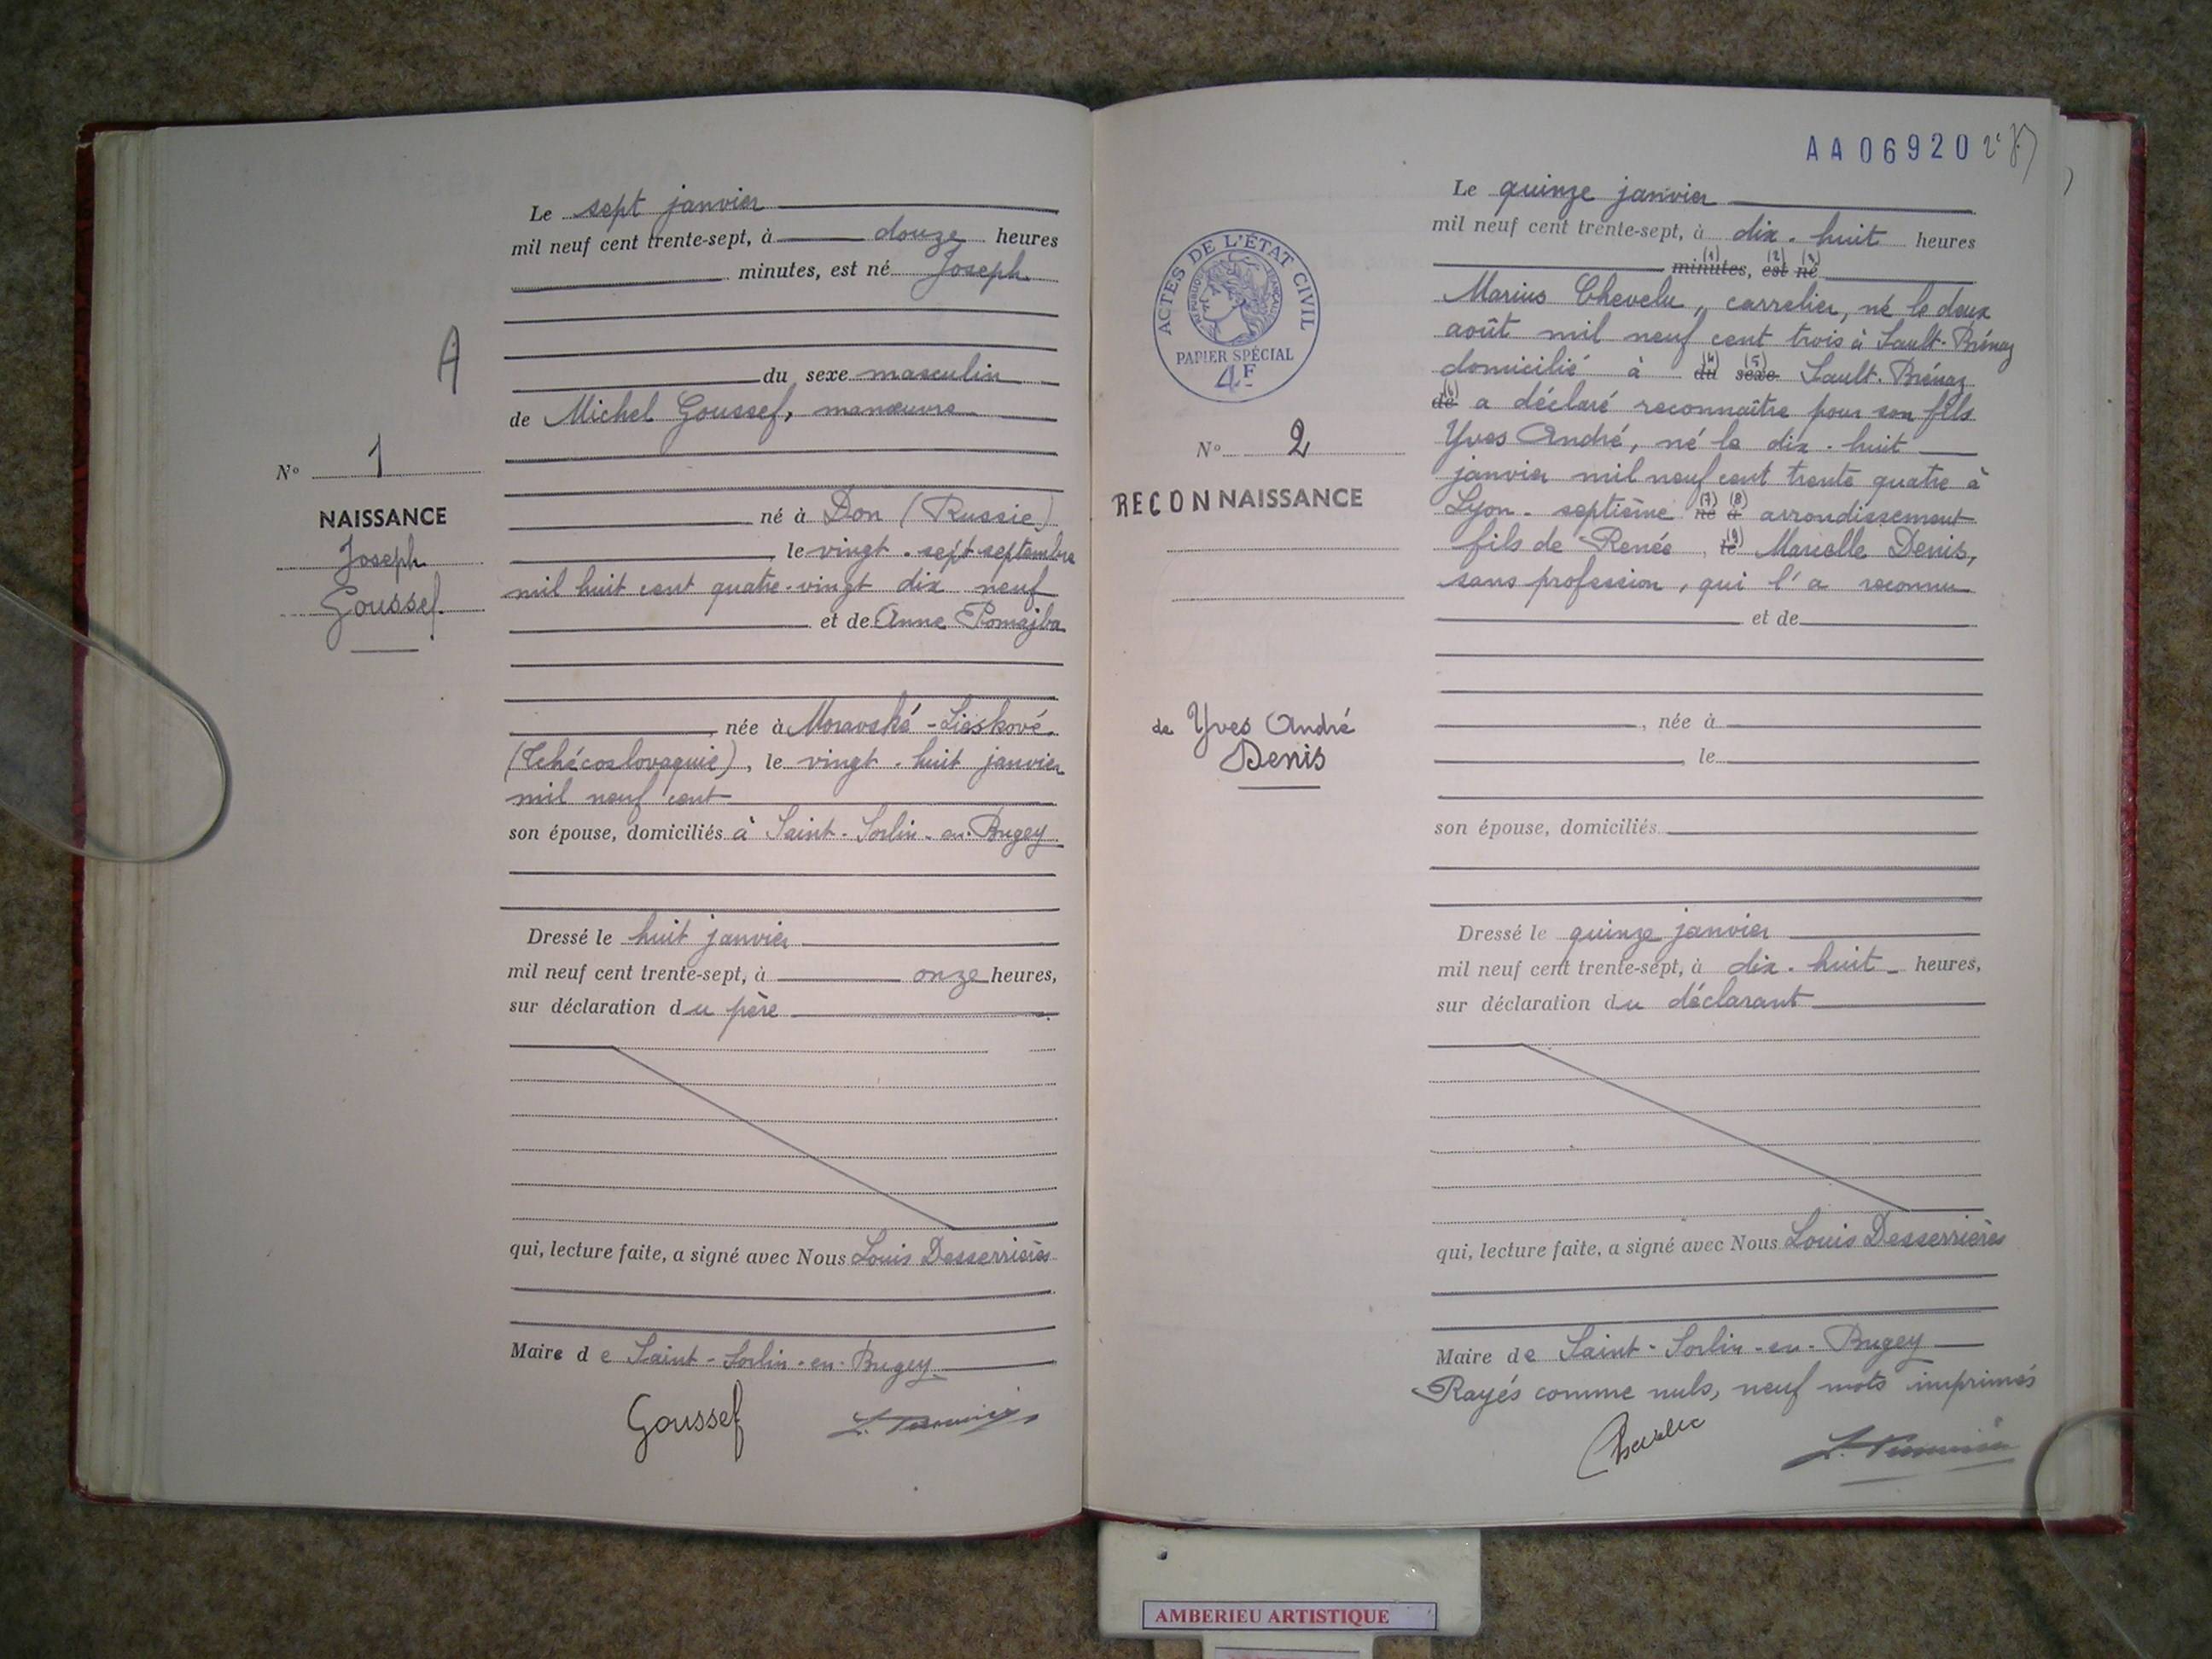 A
N° 1
NAISSANCE
Joseph
Goussef
Le sept janvier
mil neuf cent trente-sept, à douze heures
minutes, est né Joseph
du sexe masculin
de Michel Goussef, manœuvre
né à Don (Russie)
le vingt-sept septembre
mil huit cent quatre-vingt dix neuf
et de Anne Romajba
née à Moravské-Lieskové
(Tchécoslovaquie), le vingt-huit janvier
mil neuf cent
son épouse, domiciliés à Saint-Sorlin-en-Bugey
Dressé le huit janvier
mil neuf cent trente-sept, à onze heures,
sur déclaration du père
qui, lecture faite, a signé avec Nous Louis Desserrières
Maire de Saint-Sorlin-en-Bugey
Goussef
AA06920
ACTES DE L'ÉTAT CIVIL
RÉPUBLIQUE FRANÇAISE
PAPIER SPÉCIAL
4F
N° 2
RECONNAISSANCE
de Yves André
Denis
Le quinze janvier
mil neuf cent trente-sept, à dix-huit heures
(1) (2) (3)
minutes, est né
Marius Chevelu, carrelier, né le deux
août mil neuf cent trois à Sault-Brénaz
domicilié à (4) du (5) sexe Sault-Brénaz
(6) de a déclaré reconnaître pour son fils
Yves André, né le dix-huit
janvier mil neuf cent trente quatre à
Lyon-septième (7) né (8) à arrondissement
fils de Renée, (9) le Marielle Denis,
sans profession, qui l'a reconnu
et de
, née à
, le
son épouse, domiciliés
Dressé le quinze janvier
mil neuf cent trente-sept, à dix-huit heures,
sur déclaration du déclarant
qui, lecture faite, a signé avec Nous Louis Desserrières
Maire de Saint-Sorlin-en-Bugey
Rayés comme nuls, neuf mots imprimés
AMBERIEU ARTISTIQUE